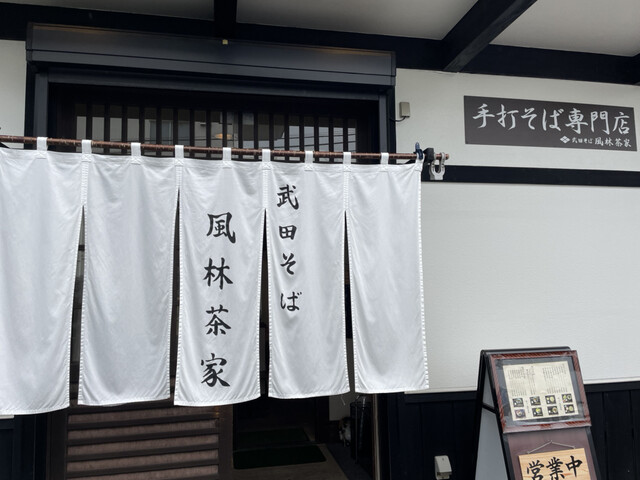 手打そば専門店
武田そば 風林茶家
武田そば
風林茶家
営業中